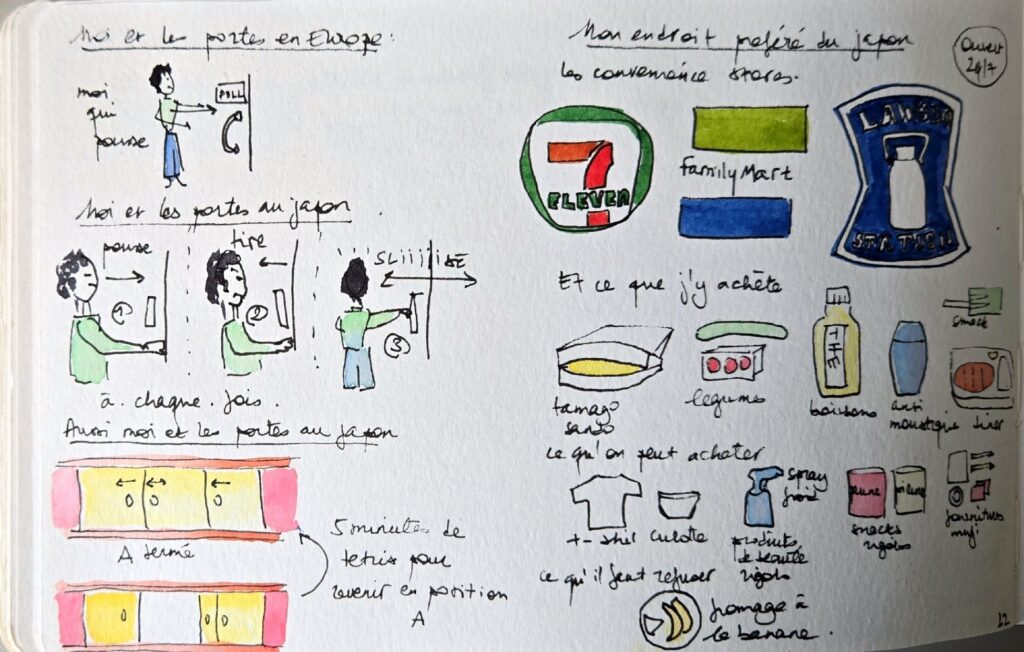 Moi et les portes en Europe :
moi
qui
pousse
PULL
Moi et les portes au Japon.
pousse
tire
SLiiiiiDE
1
2
3
à. chaque. fois.
Aussi moi et les portes au Japon
A fermé
5 minutes de
tetris pour
revenir en position
A
Mon endroit préféré du Japon
Ouvert
24/7
les convenience stores.
7
ELEVEN
FamilyMart
LAWSON
STATION
Et ce que j'y achète
tamago
sando
légumes
THE
boissons
anti
moustique
snack
diner
ce qu'on peut acheter
t-shirt
culotte
spray
froid
produits
de beauté
rigolo
prune
prune
snacks
rigolos
fournitures
muji
ce qu'il faut refuser
fromage à
la banane.
12